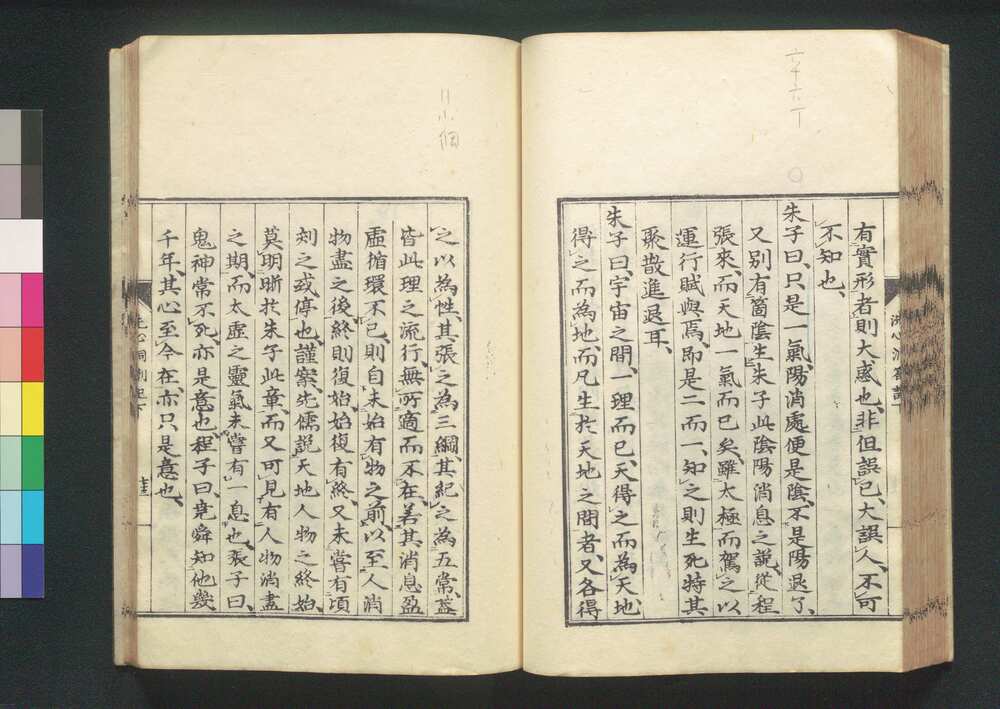 有實形者則大惑也、非但誤己、大誤人、不可
不知也、
朱子曰、只是一氣、陽消處便是陰、不是陽退了、
又別有箇陰生、朱子此陰陽消息之說、從程
張來、而天地一氣而已矣、雖太極而駕之以
運行賦與焉、即是二而一、知之則生死特其
聚散進退耳、
朱子曰、宇宙之間、一理而已、天得之而為天、地
得之而為地、而凡生於天地之間者、又各得
之以為性、其張之為三綱、其紀之為五常、蓋
皆此理之流行、無所適而不在、若其消息盈
虛、循環不已、則自未始有物之前、以至人消
物盡之後、終則復始、始復有終、又未嘗有頃
刻之或停也、謹案、先儒說天地人物之終始、
莫明晰於朱子此章、而又可見有人物消盡
之期、而太虛之靈氣未嘗有一息也、張子曰、
鬼神常不死、亦是意也、程子曰、堯舜知他幾
千年、其心至今在、亦只是意也、
洗心洞劄記下